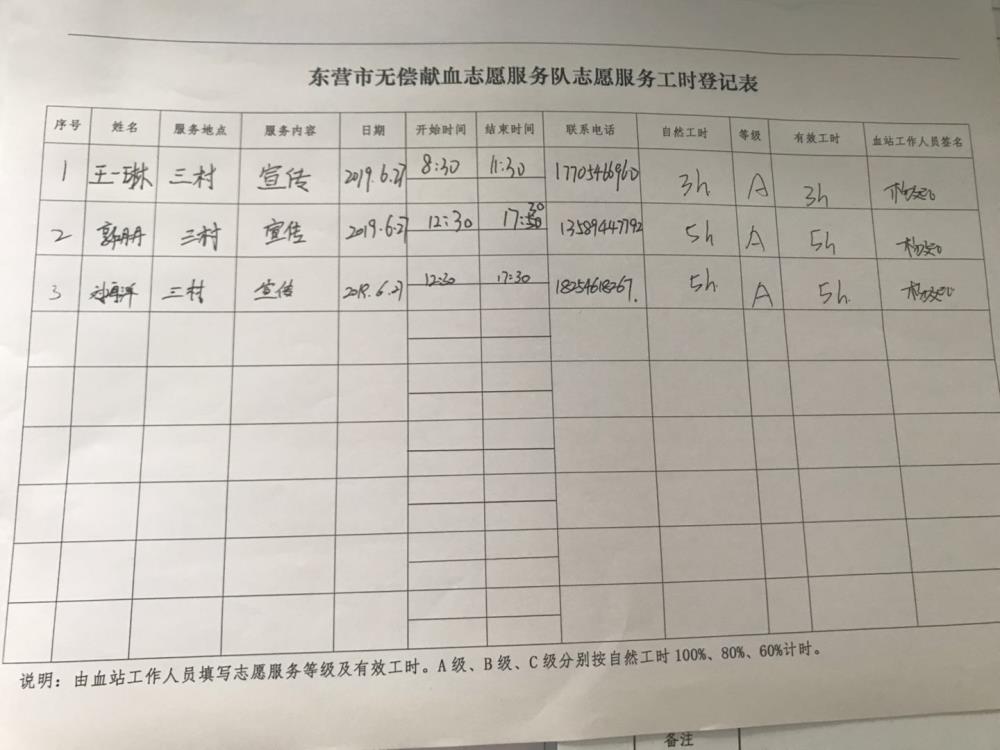 东营市无偿献血志愿服务队志愿服务工时登记表
序号 姓名 服务地点 服务内容 日期 开始时间 结束时间 联系电话 自然工时 等级 有效工时 血站工作人员签名
1 王一琳 三村 宣传 2019.6.27 8:30 11:30 17705466960 3h A 3h
2 郭丹丹 三村 宣传 2019.6.27 12:30 17:30 13589447792 5h A 5h
3 三村 宣传 2019.6.27 12:30 17:30 18254618267. 5h A 5h
说明：由血站工作人员填写志愿服务等级及有效工时。A级、B级、C级分别按自然工时100%、80%、60%计时。
备注